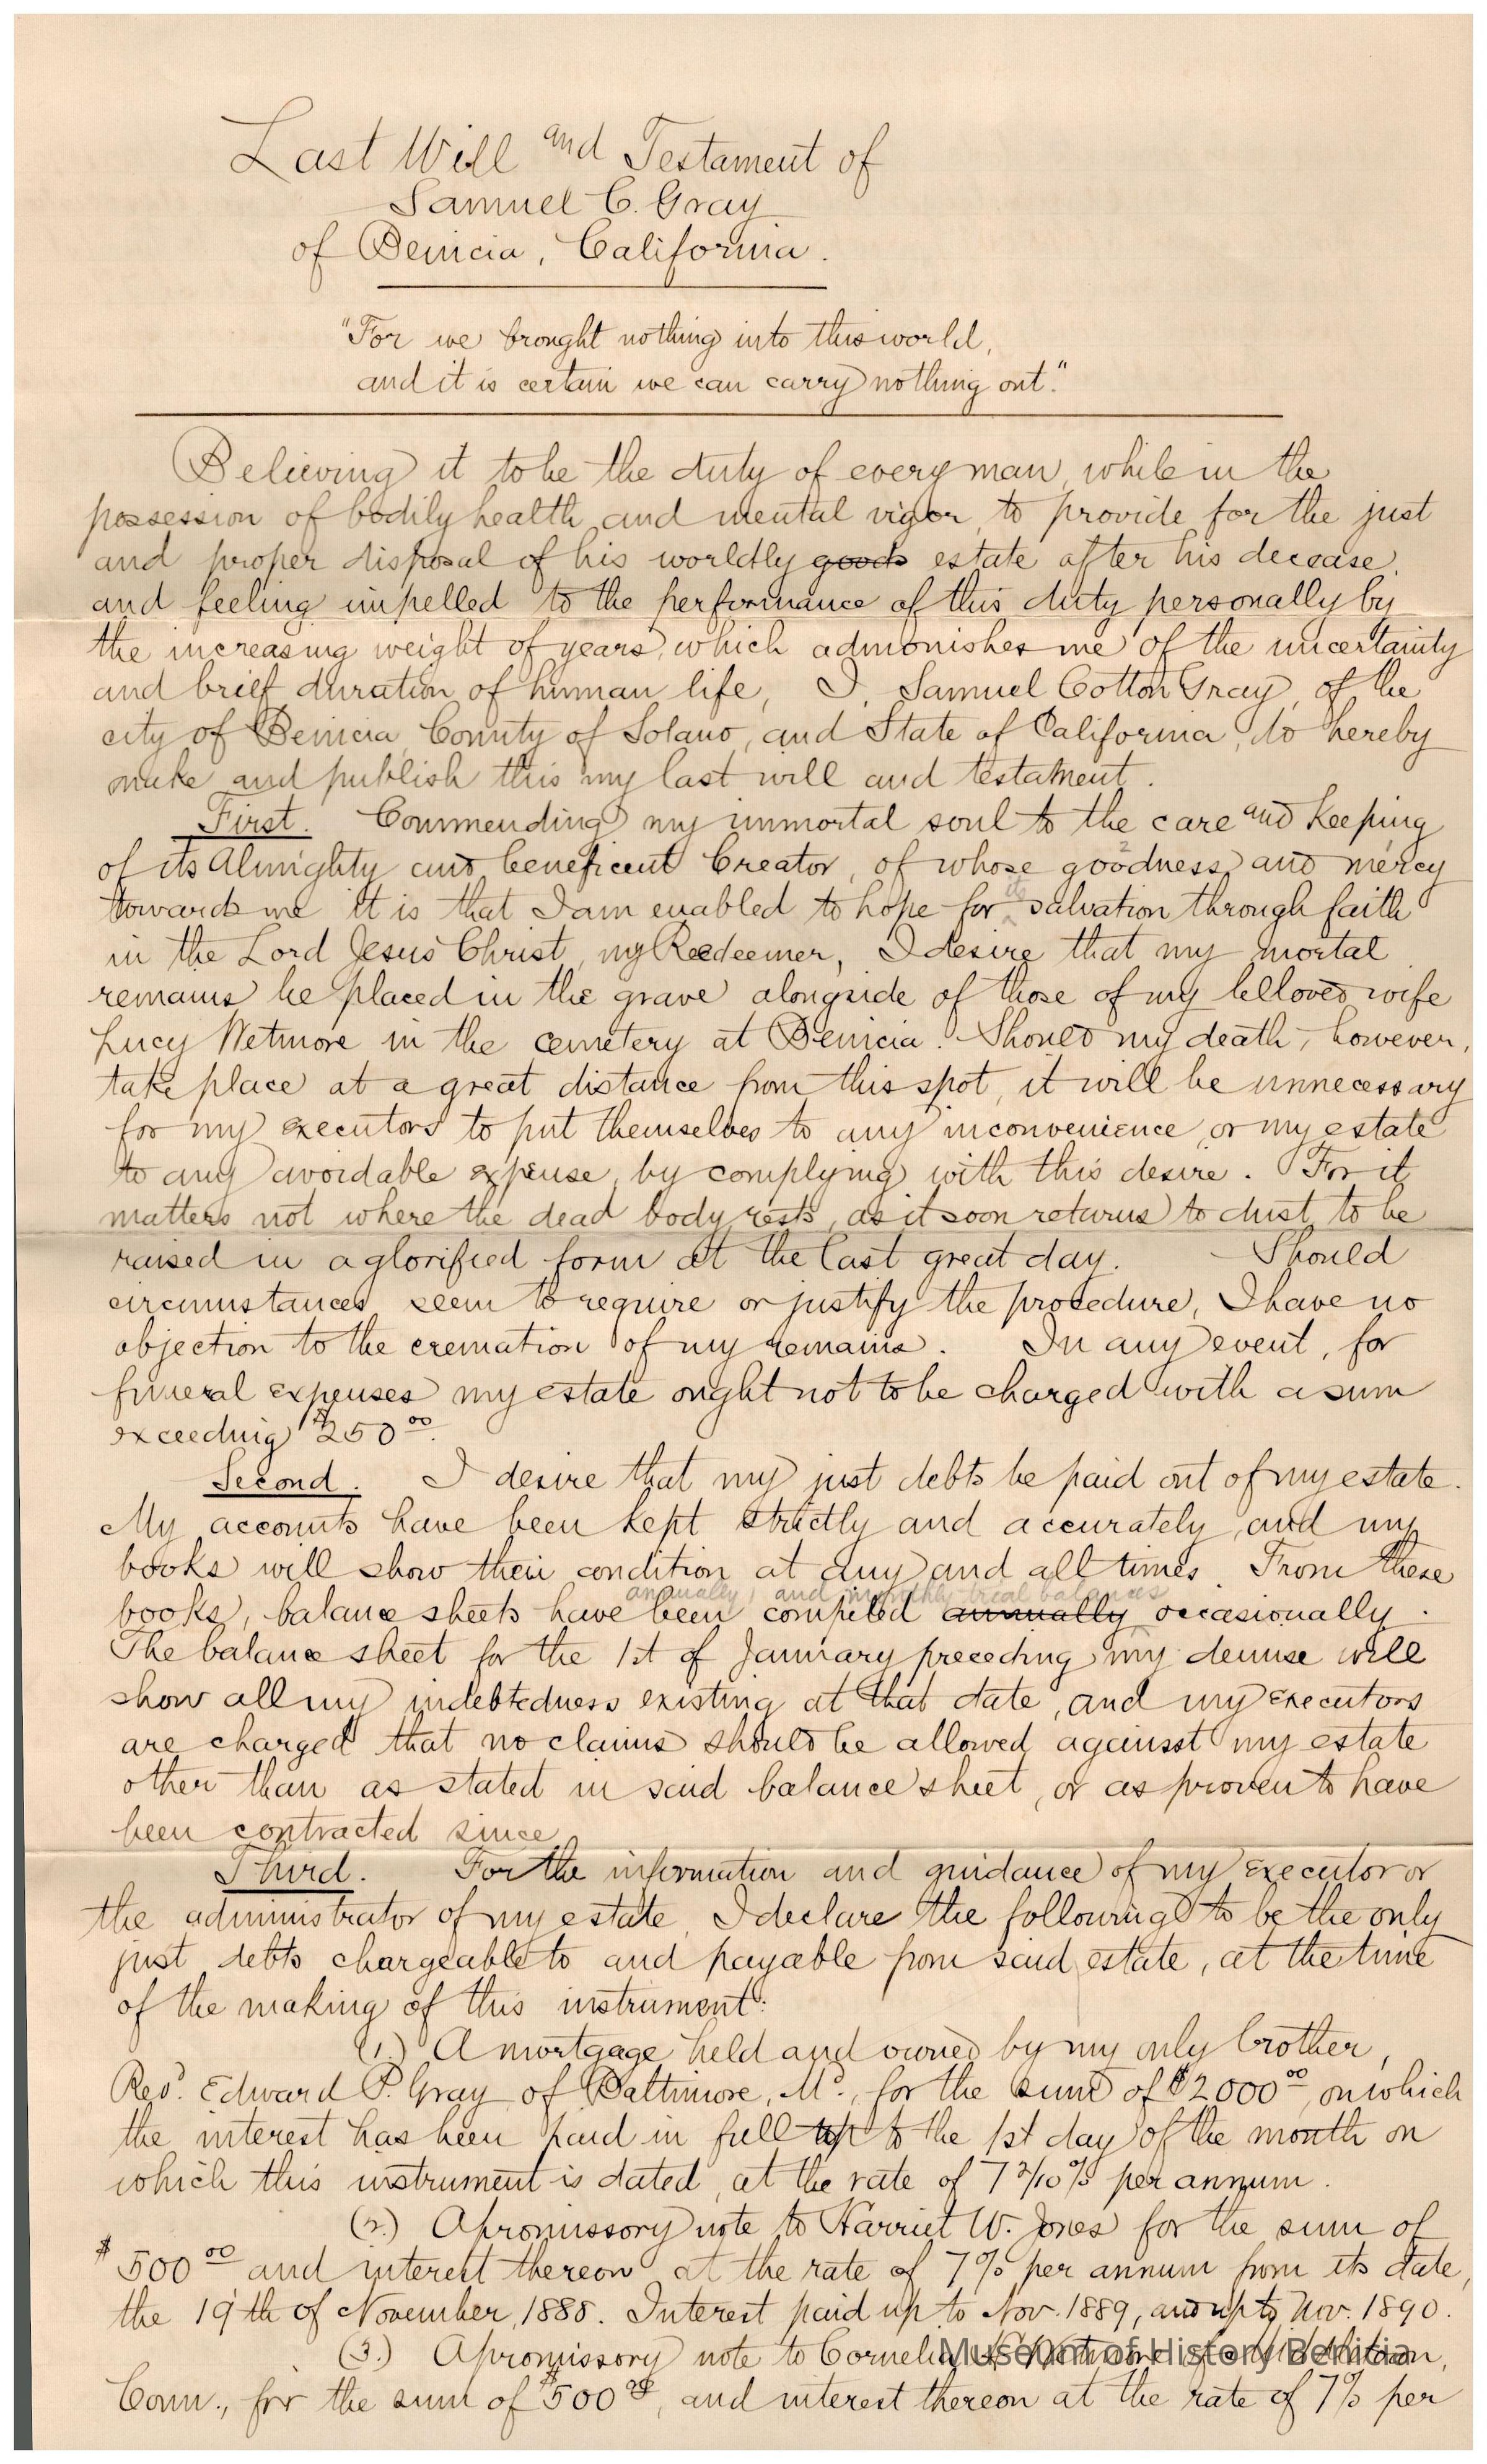 Last Will and Testament of
Samuel C. Gray
of Benicia, California.
"For we brought nothing into this world,
and it is certain we can carry nothing out."
Believing it to be the duty of every man, while in the
possession of bodily health and mental vigor, to provide for the just
and proper disposal of his worldly goods estate after his decease,
and feeling impelled to the performance of this duty personally by
the increasing weight of years, which admonishes me of the uncertainty
and brief duration of human life, I, Samuel Cotton Gray, of the
city of Benicia, County of Solano, and State of California, do hereby
make and publish this my last will and testament.
First. Commending my immortal soul to the care and keeping
of its Almighty and beneficent Creator, of whose goodness and mercy
towards me it is that I am enabled to hope for its salvation through faith
in the Lord Jesus Christ, my Redeemer, I desire that my mortal
remains be placed in the grave alongside of those of my belloved wife
Lucy Wetmore in the cemetery at Benicia. Should my death, however,
take place at a great distance from this spot, it will be unnecessary
for my executors to put themselves to any inconvenience, or my estate
to any avoidable expense, by complying with this desire. For it
matters not where the dead body rests, as it soon returns to dust, to be
raised in a glorified form at the last great day. Should
circumstances seem to require or justify the procedure, I have no
objection to the cremation of my remains. In any event, for
funeral expenses my estate ought not to be charged with a sum
exceeding $250 00.
Second. I desire that my just debts be paid out of my estate.
My accounts have been kept strictly and accurately, and my
books will show their condition at any and all times. From these
annually, and monthly trial balances
books, balance sheets have been compiled annually occasionally.
The balance sheet for the 1st of January preceding my demise will
show all my indebtedness existing at that date, and my executors
are charged that no claims should be allowed againsst my estate
other than as stated in said balance sheet, or as proven to have
been contracted since.
Third. For the information and guidance of my executor or
the administrator of my estate, I declare the following to be the only
just debts chargeable to and payable from said estate, at the time
of the making of this instrument:
(1.) A mortgage held and owned by my only brother,
Revd. Edward P. Gray of Baltimore, Md., for the sum of $2000 00, on which
the interest has been paid in full up to the 1st day of the month on
which this instrument is dated, at the rate of 7 2/10 % per annum.
(2.) A promissory note to Harriet W. Jones for the sum of
$500 00 and interest thereon at the rate of 7% per annum from its date,
the 19th of November, 1888. Interest paid up to Nov. 1889, and up to Nov. 1890.
(3.) A promissory note to Cornelia
Museum of History Benicia
Conn., for the sum of $500 00, and interest thereon at the rate of 7% per